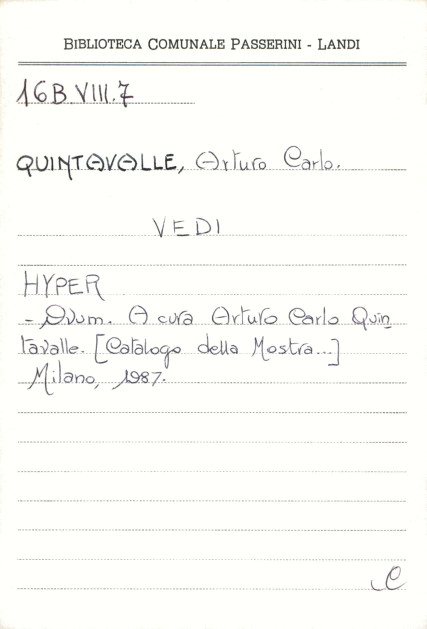 BIBLIOTECA COMUNALE PASSERINI - LANDI
16B.VIII.7
QUINTAVALLE, Arturo Carlo.
VEDI
HYPER
- Ovum. A cura Arturo Carlo Quin
tavalle. [Catalogo della Mostra...]
Milano, 1987.
C